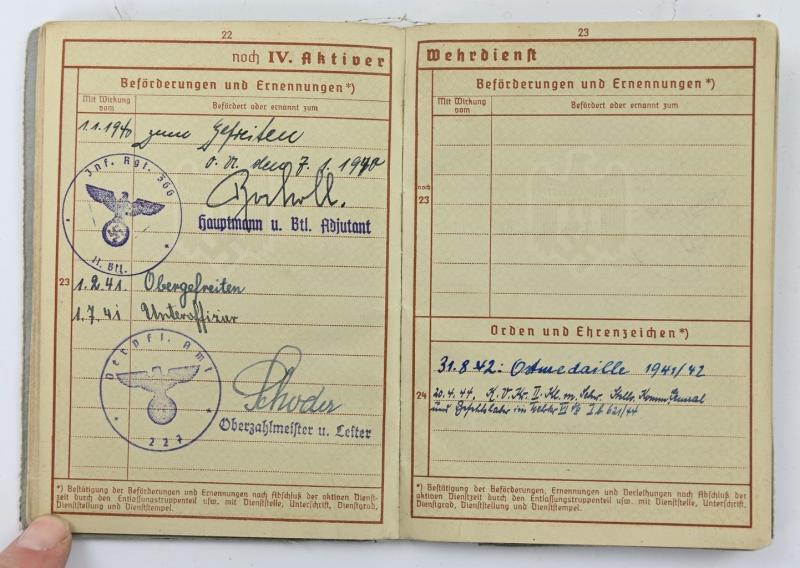 22
noch IV. Aktiver
Beförderungen und Ernennungen*)
Mit Wirkung vom
Befördert oder ernannt zum
1.1.1940 zum Gefreiten
O. U. den 7.1.1940
Inf. Rgt. 366
II. Btl.
Hauptmann u. Btl. Adjutant
23
1.2.41. Obergefreiten
1.7.41 Unteroffizier
Verpfl. Amt
227
Schoder
Oberzahlmeister u. Leiter
*) Bestätigung der Beförderungen und Ernennungen nach Abschluß der aktiven Dienst-
zeit durch den Entlassungstruppenteil usw. mit Dienststelle, Unterschrift, Dienstgrad,
Dienststellung und Dienststempel.
23
Wehrdienst
Beförderungen und Ernennungen*)
Mit Wirkung vom
Befördert oder ernannt zum
noch
23
Orden und Ehrenzeichen*)
31.8.42: Ostmedaille 1941/42
24
20.4.44, K. V. Kr. II. Kl. m. Schw. Komm. General
und Befehlshaber im
*) Bestätigung der Beförderungen, Ernennungen und Verleihungen nach Abschluß der
aktiven Dienstzeit durch den Entlassungstruppenteil usw. mit Dienststelle, Unterschrift,
Dienstgrad, Dienststellung und Dienststempel.